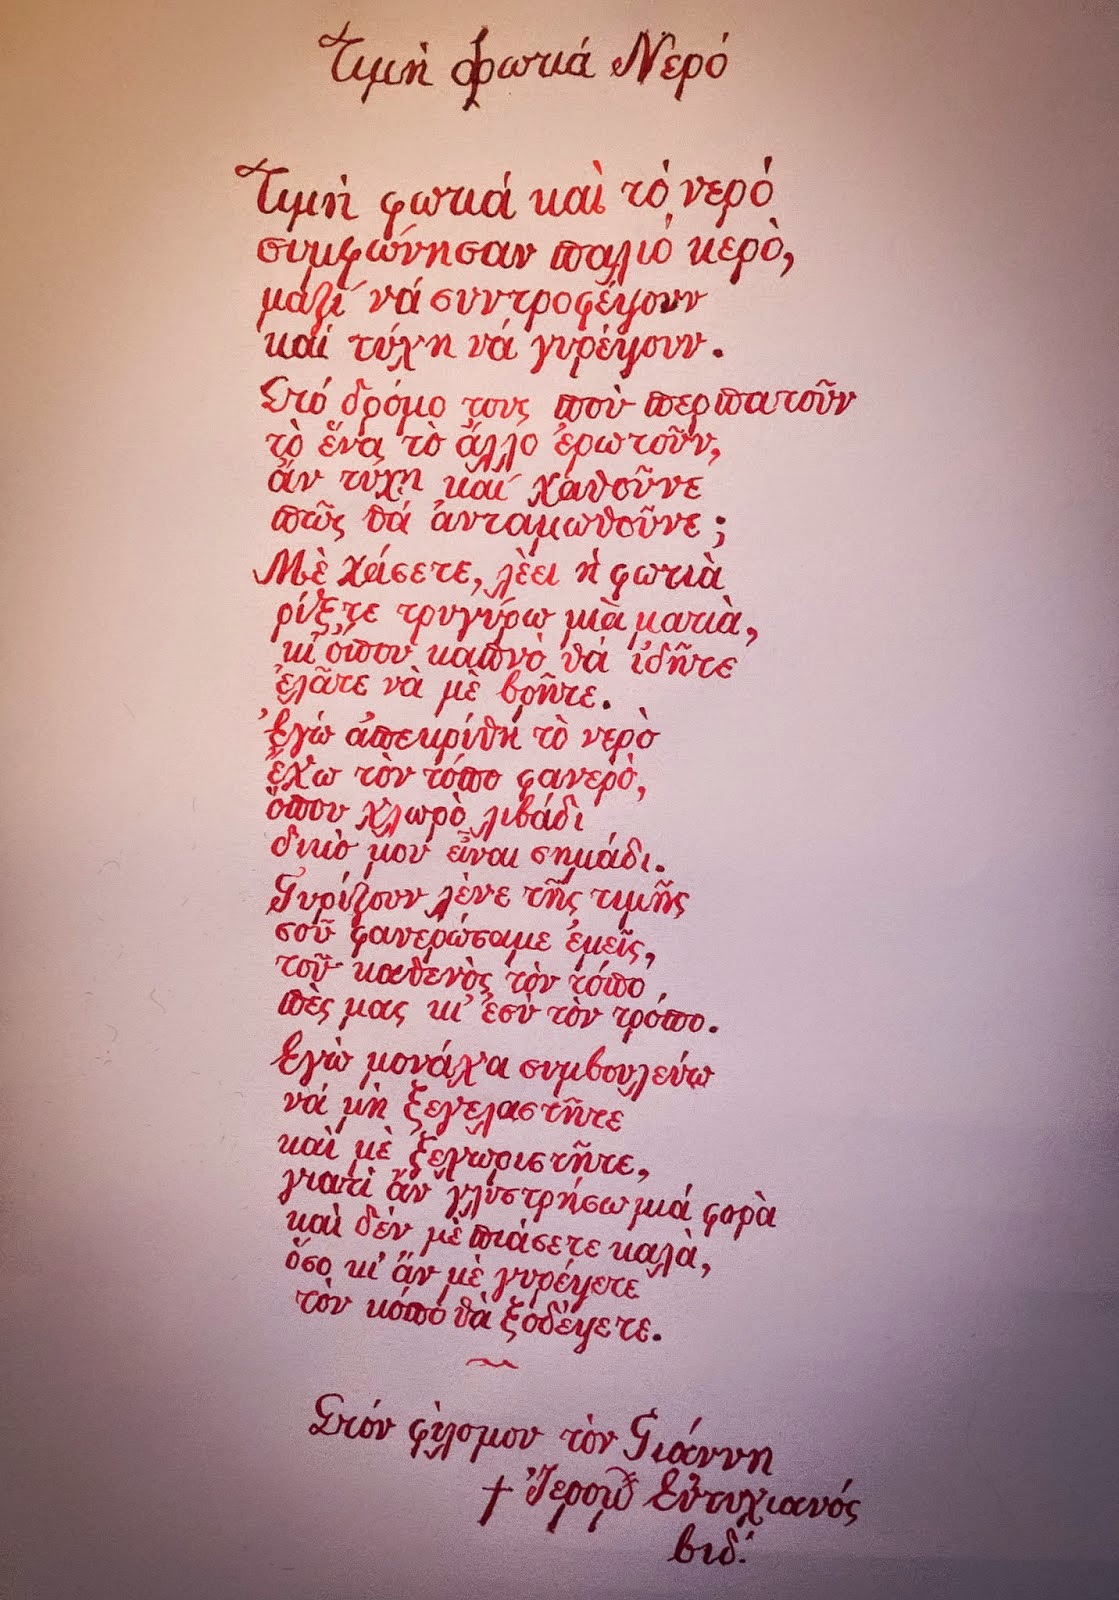 Τιμὴ φωτιά Νερό
Τιμὴ φωτιά καὶ τό νερό
συμφώνησαν παλιό κερὸ,
μαζί νά συντροφέψουν
καί τύχη νά γυρέψουν.
Στό δρόμο τους ποὺ περπατοῦν
τὸ ἕνα τὸ ἄλλο ἐρωτοῦν,
ἄν τύχη καί χαθοῦνε
πῶς θά ἀνταμωθοῦνε;
Μὲ χάσετε, λέει ἡ φωτιὰ
ρίξτε τρυγύρω μιὰ ματιὰ,
κι ὅπου καπνὸ θά ἰδῆτε
ἐλᾶτε νὰ μὲ βρῆτε.
Ἐγώ ἀπεκρίθη τὸ νερὸ
ἔχω τὸν τόπο φανερὸ,
ὅπου χλωρὸ λιβάδι
δικὸ μου εἶναι σημάδι.
Γυρίζουν λὲνε τῆς τιμῆς
σοῦ φανερώσαμε ἐμεῖς,
τοῦ καθενὸς τὸν τόπο
πὲς μας κι' ἐσὺ τὸν τρόπο.
Ἐγὼ μονάχα συμβουλεύω
νά μὴ ξεγελαστῆτε
καὶ μὲ ξεχωριστῆτε,
γιατὶ ἄν γλυστρήσω μιά φορὰ
καὶ δέν μὲ πιάσετε καλὰ,
ὅσο κι' ἄν μὲ γυρέψετε
τὸν κόπο θὰ ξοδέψετε.
Στόν φὶλομου τὸν Γιάννη
† Ἱερομ Εὐτυχιανός
βιδ.